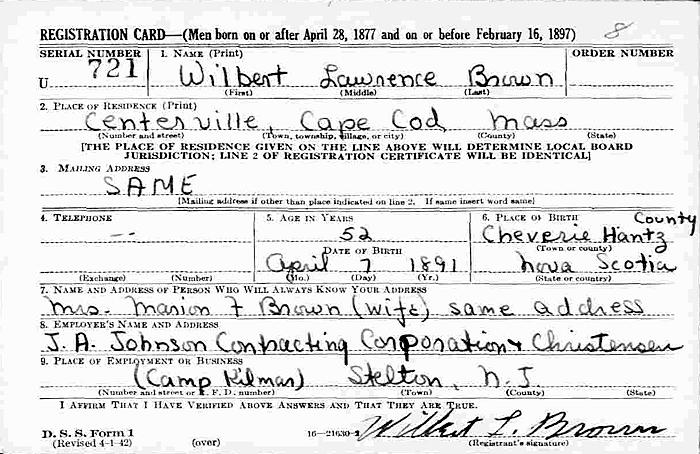 REGISTRATION CARD—(Men born on or after April 28, 1877 and on or before February 16, 1897) 8
SERIAL NUMBER 1. NAME (Print) ORDER NUMBER
U 721 Wilbert Lawrence Brown
(First) (Middle) (Last)
2. PLACE OF RESIDENCE (Print)
Centerville, Cape Cod Mass
(Number and street) (Town, township, village, or city) (County) (State)
[THE PLACE OF RESIDENCE GIVEN ON THE LINE ABOVE WILL DETERMINE LOCAL BOARD
JURISDICTION; LINE 2 OF REGISTRATION CERTIFICATE WILL BE IDENTICAL]
3. MAILING ADDRESS
SAME
[Mailing address if other than place indicated on line 2. If same insert word same]
4. TELEPHONE 5. AGE IN YEARS 6. PLACE OF BIRTH County
-- 52 Cheverie Hantz
(Town or county)
DATE OF BIRTH
April 7 1891 Nova Scotia
(Exchange) (Number) (Mo.) (Day) (Yr.) (State or country)
7. NAME AND ADDRESS OF PERSON WHO WILL ALWAYS KNOW YOUR ADDRESS
Mrs. Marion F Brown (wife) same address
8. EMPLOYER'S NAME AND ADDRESS
J. A. Johnson Contracting Corporation & Christensen
9. PLACE OF EMPLOYMENT OR BUSINESS
(Camp Kilmar) Stelton, N.J.
(Number and street or R. F. D. number) (Town) (County) (State)
I AFFIRM THAT I HAVE VERIFIED ABOVE ANSWERS AND THAT THEY ARE TRUE.
D. S. S. Form 1
(Revised 4-1-42) (over) 16—21630-2 Wilbert L. Brown
(Registrant's signature)